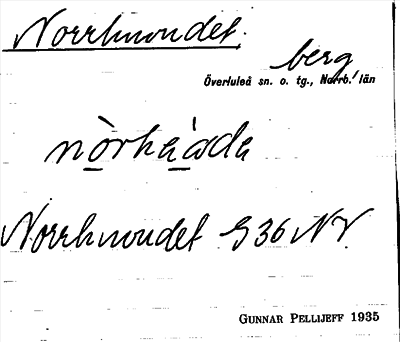 Norrhuvudet,
berg,
Överluleå sn. o. tg., Norrb. län
Norrhuvudet G 36 NV.
GUNNAR PELLIJEFF 1935